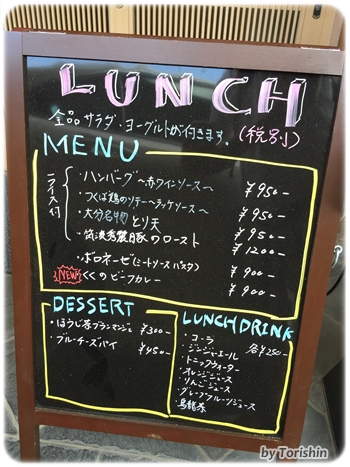 LUNCH
全品サラダ・ヨーグルトが付きます。(税別)
MENU
ライス付
・ハンバーグ～赤ワインソース～ ¥950-
・つくば鶏のソテー～デミグラスソース～ ¥950-
・大分名物とり天 ¥950-
・筑波秀麗豚のロースト ¥1200-
・ボロネーゼ(ミートソースパスタ) ¥900-
NEW
のビーフカレー ¥900-
DESSERT
・ほうじ茶ブランマンジェ ¥300-
・ブルーチーズパイ ¥450-
LUNCH DRINK
・コーラ 各¥250-
・ジンジャーエール
・トニックウォーター
・オレンジジュース
・りんごジュース
・グレープフルーツジュース
・烏龍茶
by Torishin